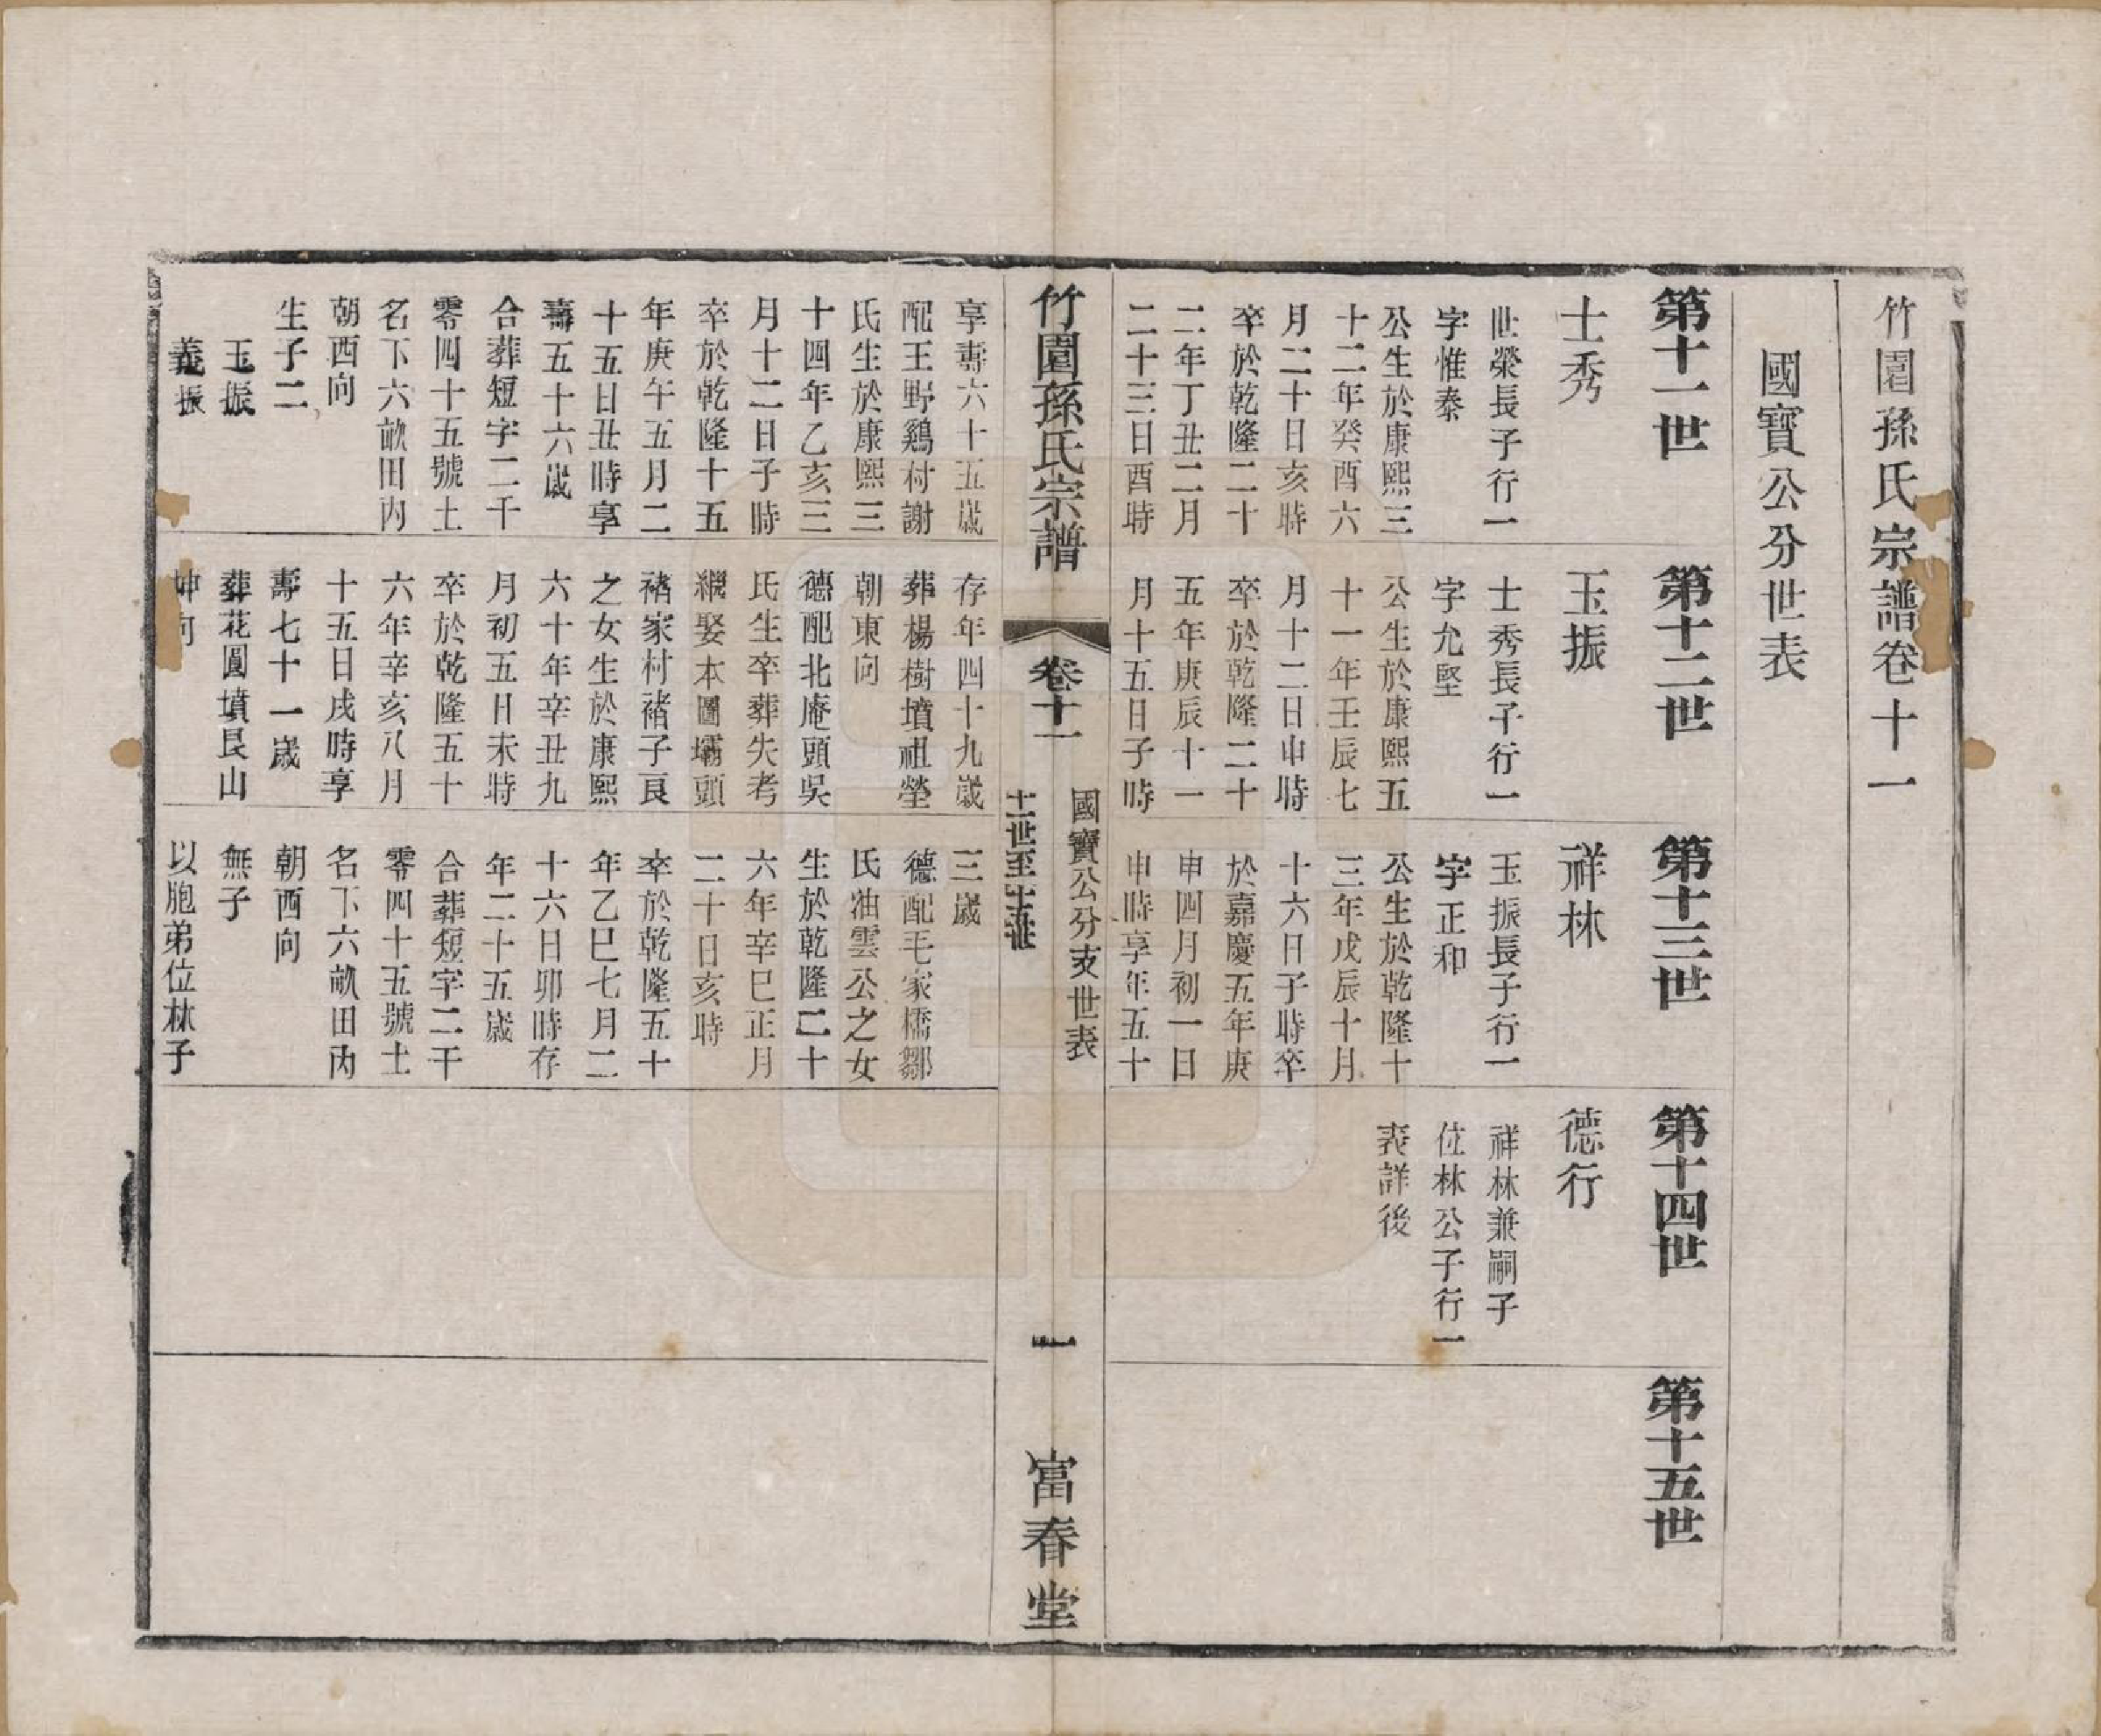 竹園孫氏宗譜卷十一
國寶公分世表
第十一世
士秀
世榮長子行一
字惟泰
公生於康熙三
十二年癸酉六
月二十日亥時
卒於乾隆二十
二年丁丑二月
二十三日酉時
享壽六十五歲
配王野鷄村謝
氏生於康熙三
十四年乙亥三
月十二日子時
卒於乾隆十五
年庚午五月二
十五日丑時享
壽五十六歲
合葬短字二千
零四十五號土
名下六畝田內
朝西向
生子二
玉振
義振
第十二世
玉振
士秀長子行一
字允堅
公生於康熙五
十一年壬辰七
月十二日申時
卒於乾隆二十
五年庚辰十一
月十五日子時
存年四十九歲
葬楊樹墳祖塋
朝東向
德配北庵頭吳
氏生卒葬失考
繼娶本圖壩頭
褚家村褚子良
之女生於康熙
六十年辛丑九
月初五日未時
卒於乾隆五十
六年辛亥八月
十五日戌時享
壽七十一歲
葬花園墳艮山
坤向
第十三世
祥林
玉振長子行一
字正和
公生於乾隆十
三年戊辰十月
十六日子時卒
於嘉慶五年庚
申四月初一日
申時享年五十
三歲
德配毛家橋鄒
氏油雲公之女
生於乾隆二十
六年辛巳正月
二十日亥時
卒於乾隆五十
年乙巳七月二
十六日卯時存
年二十五歲
合葬短字二千
零四十五號土
名下六畝田內
朝西向
無子
以胞弟位林子
第十四世
德行
祥林兼嗣子
位林公子行一
表詳後
第十五世
竹園孫氏宗譜
卷十一
國寶公分支世表
十一世至十五世
一
富春堂